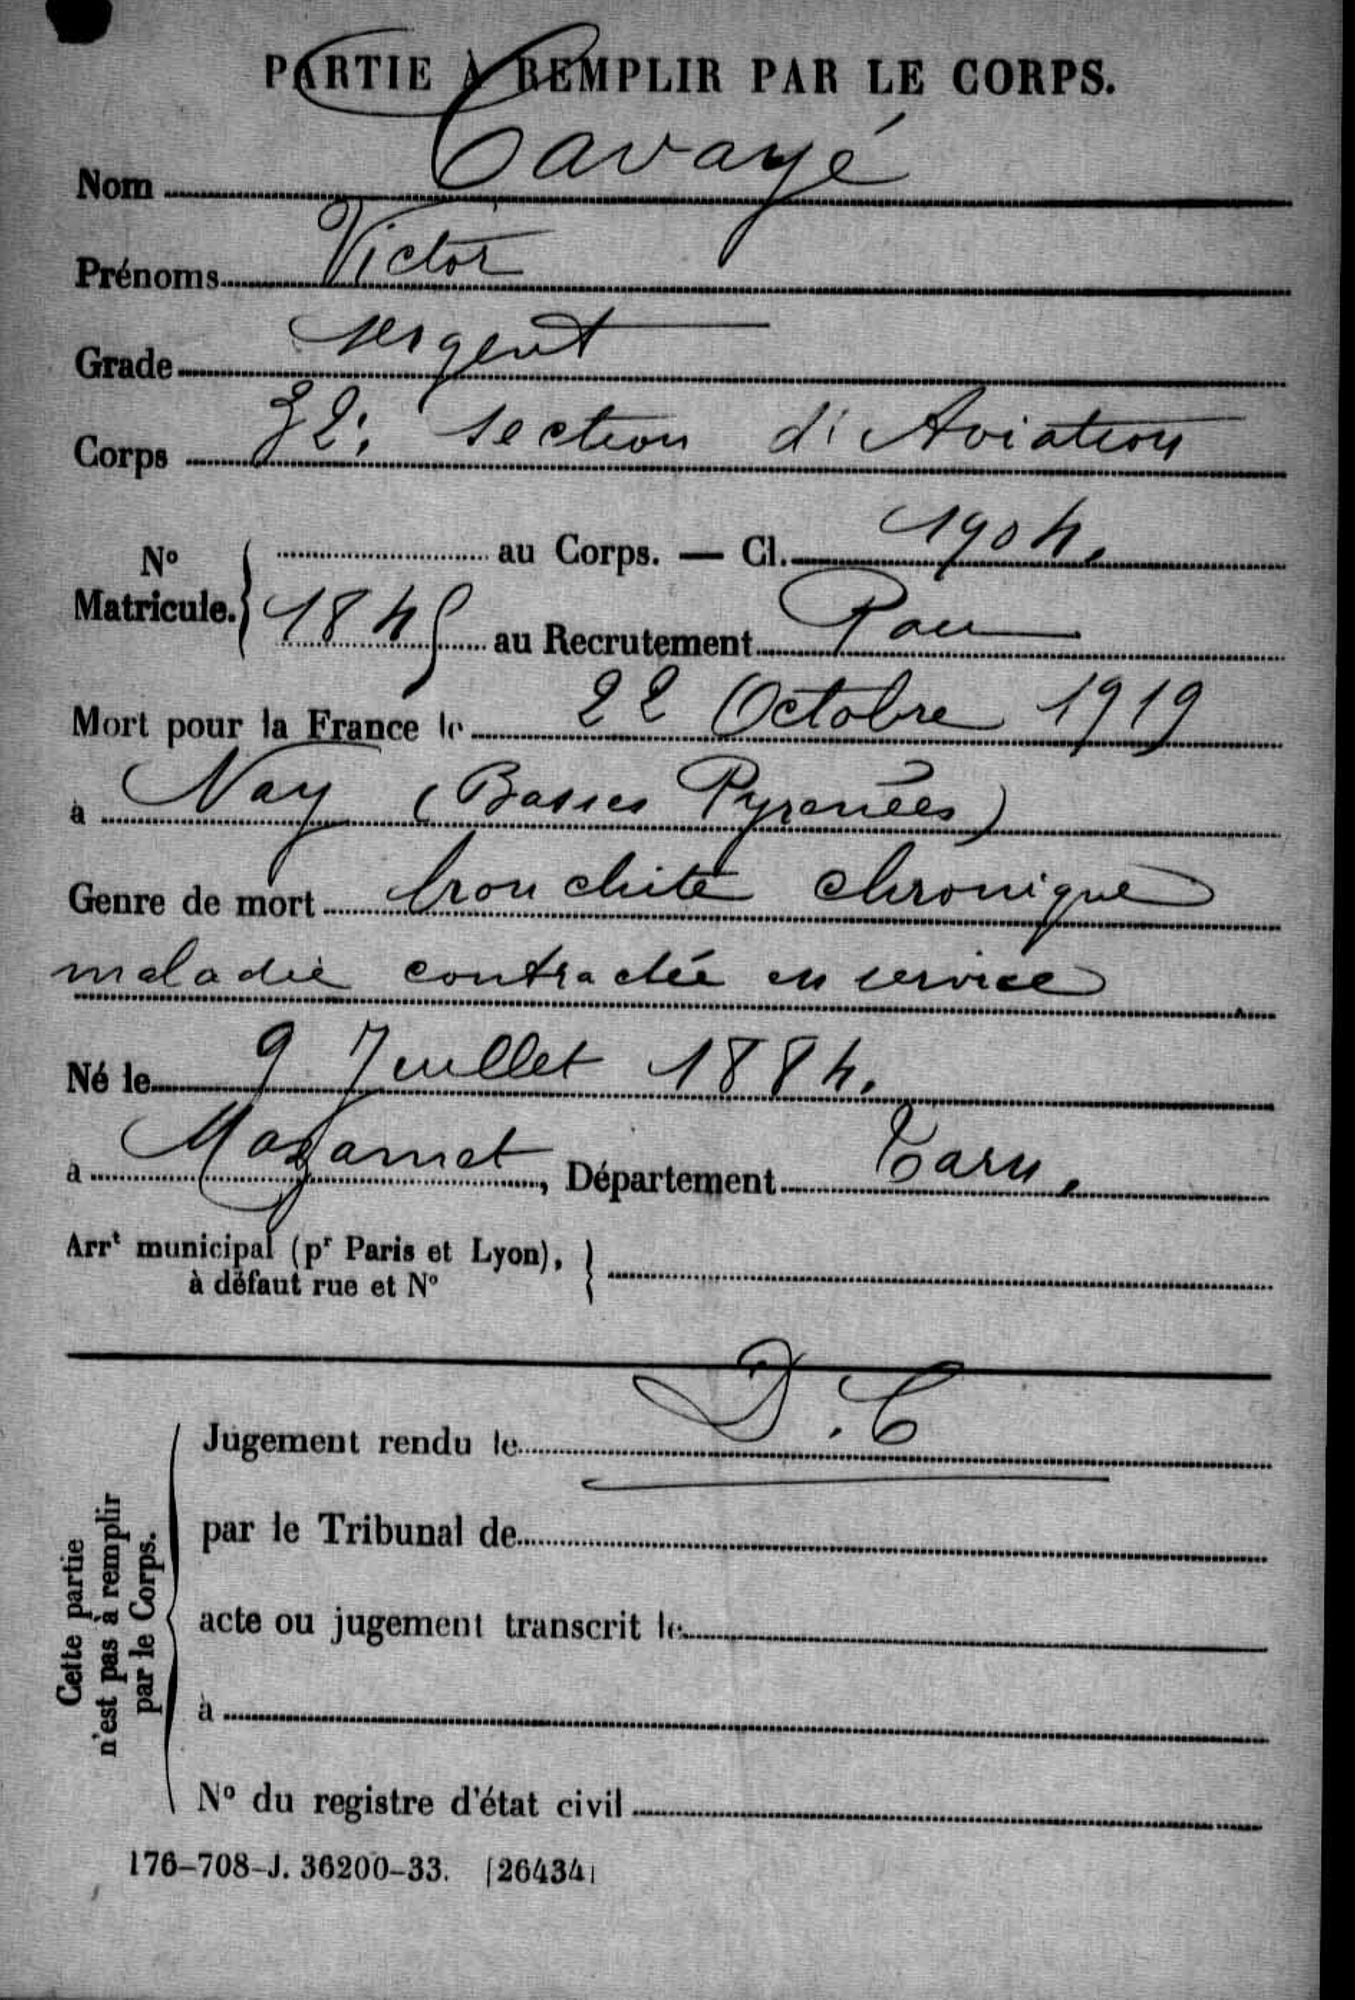 PARTIE À REMPLIR PAR LE CORPS.
Nom Cavayé
Prénoms Victor
Grade sergent
Corps 32e section d'Aviation
N° Matricule. { au Corps. — Cl. 1904.
1845 au Recrutement Pau
Mort pour la France le 22 Octobre 1919
à Nay (Basses Pyrenées)
Genre de mort bronchite chronique
maladie contractée en service
Né le 9 Juillet 1884.
à Mazamet, Département Tarn.
Arrt municipal (pr Paris et Lyon), }
à défaut rue et N°
D.C
Jugement rendu le
par le Tribunal de
acte ou jugement transcrit le
à
N° du registre d'état civil
Cette partie
n'est pas à remplir
par le Corps.
176-708-J. 36200-33. [26434]